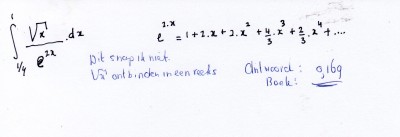 ∫_{1/4}^{1} √x / e^{2x} . dx
e^{2.x} = 1 + 2.x + 2.x^2 + 4/3.x^3 + 2/3.x^4 + ....
Dit snap ik niet.
√x ontbinden in een reeks
Antwoord: 0,169
Boek: